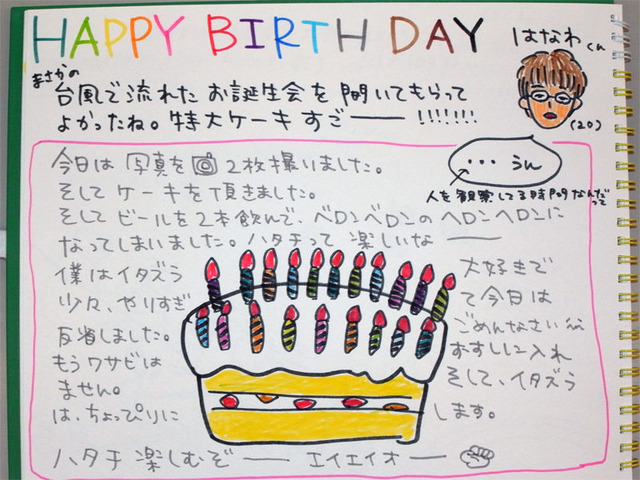 HAPPY BIRTHDAY はなわくん
まさかの
台風で流れた お誕生会を 開いてもらって
よかったね。特大ケーキ すご── !!!!!!!
(20)
… うん
人を観察してる時間なんだって
今日は 写真を 2枚撮いました。
そして ケーキを頂きました。
そして ビールを2本飲んで、ベロンベロンの ヘロンヘロンに
なってしまいました。ハタチって 楽しいな──
僕はイタズラ 大好きで
少々、やりすぎ て今日は
反省しました。 ごめんなさい
もうワサビは おすしに入れ
ません。 そして、イタズラ
は、ちょっぴりに します。
ハタチ 楽しむぞ── エイエイオ──